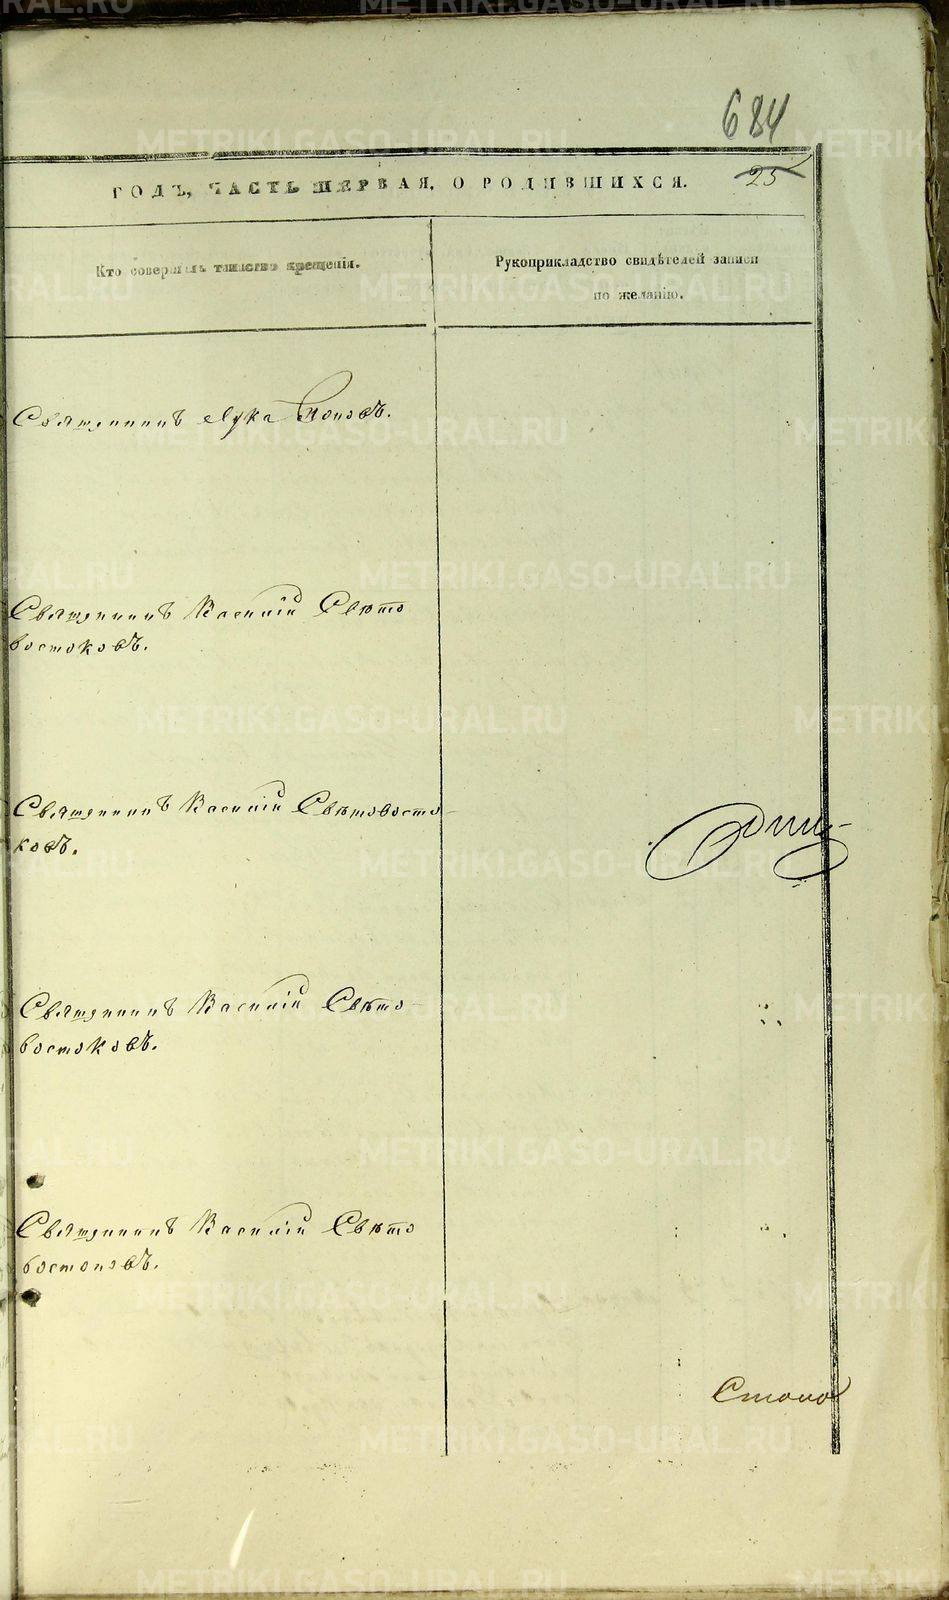 684
25
ГОДЪ, ЧАСТЬ ПЕРВАЯ, О РОДИВШИХСЯ.
Кто совершалъ таинство крещенія.
Рукоприкладство свидѣтелей записи
по желанію.
Священникъ Лука Поповъ.
Священникъ Василій Свѣто
востоковъ.
Священникъ Василій Свѣтовосто-
ковъ.
Священникъ Василій Свѣто-
востоковъ.
Священникъ Василій Свѣто
востоковъ.
METRIKI.GASO-URAL.RU